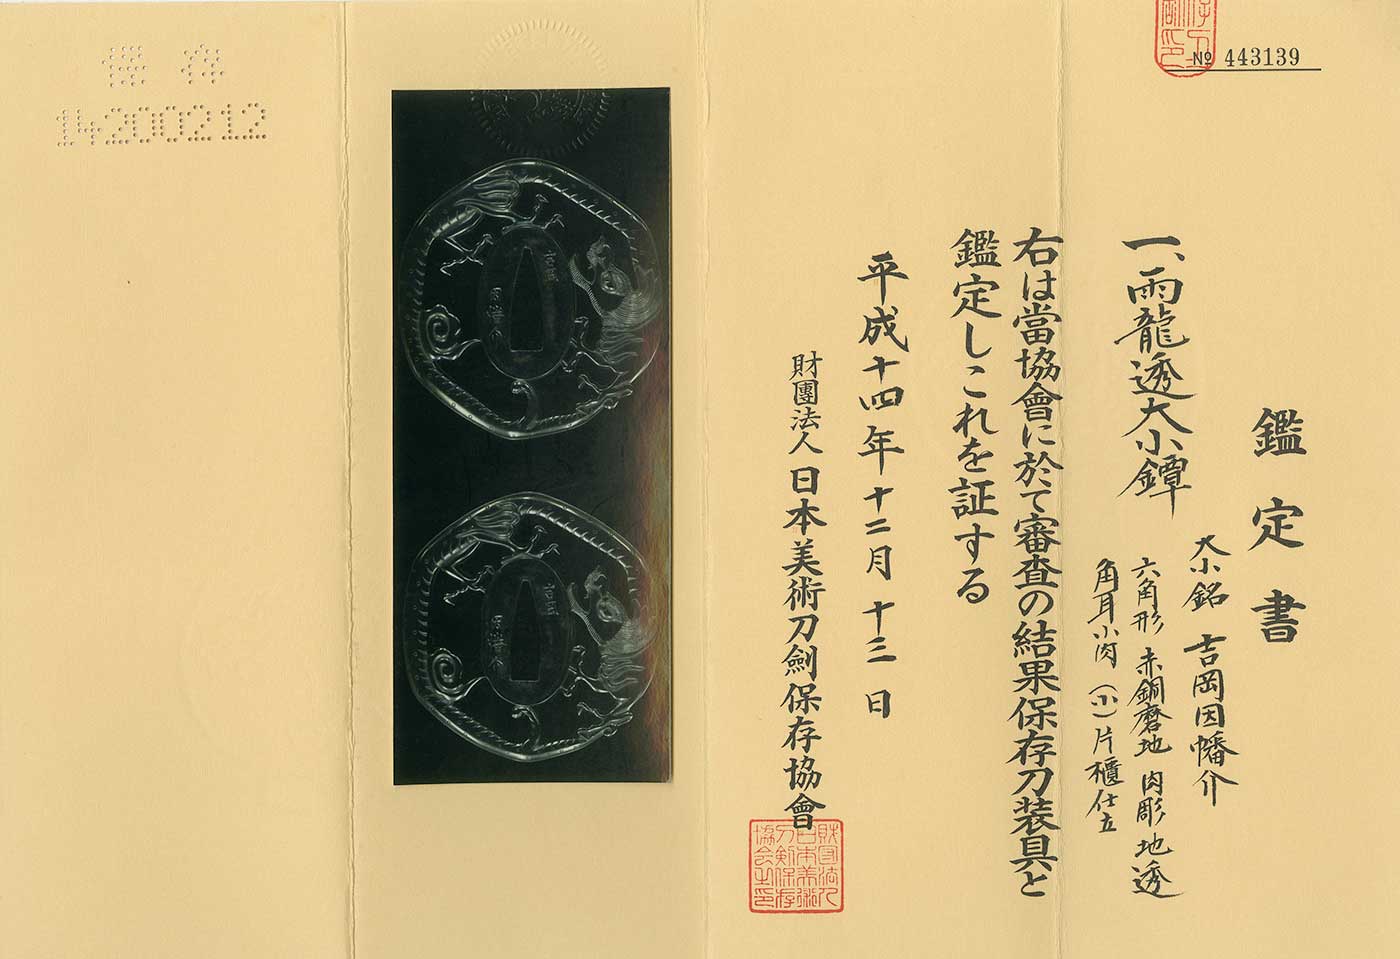 № 443139
鑑定書
一、雨龍透大小鐔
大小銘 吉岡因幡介
六角形 赤銅磨地 肉彫地透
角耳小肉 (小)片櫃仕立
右は當協會に於て審査の結果保存刀装具と
鑑定しこれを証する
平成十四年十二月十三日
財團法人 日本美術刀劍保存協會
財団法人
日本美術
刀剣保存
協会之印
保存
14200212
吉岡
因幡介
吉岡
因幡介